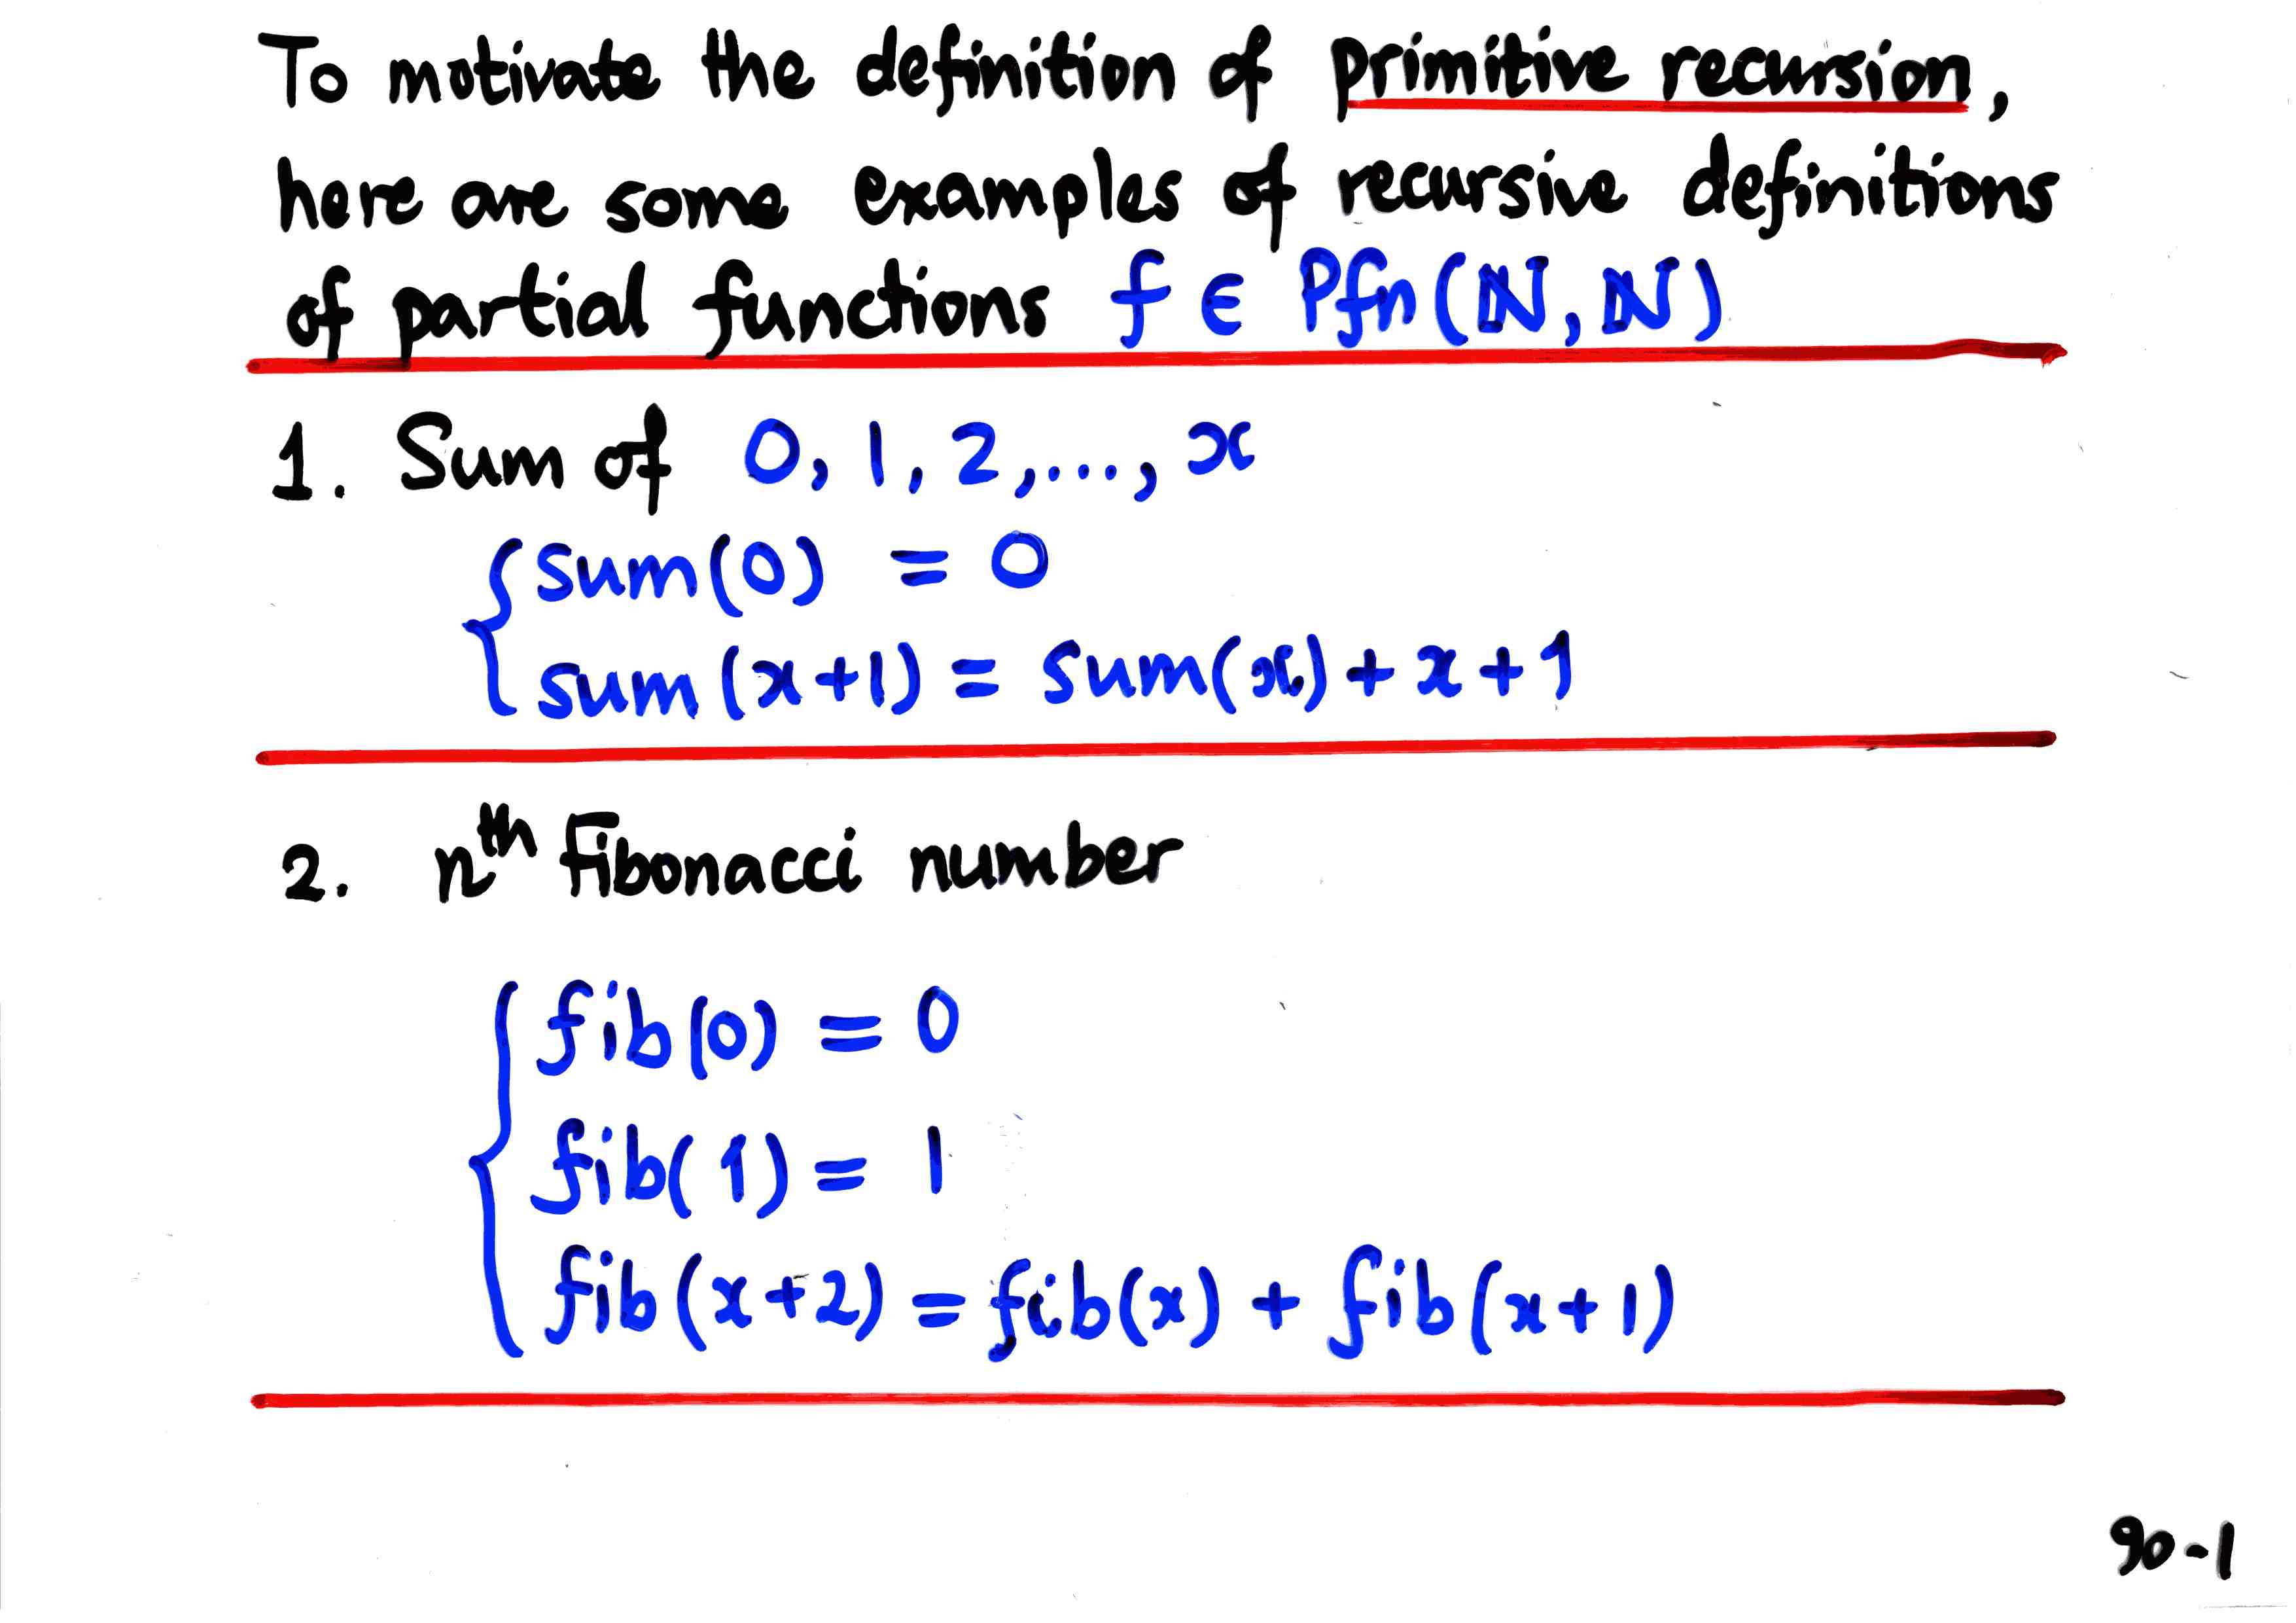 To motivate the definition of primitive recursion,
here are some examples of recursive definitions
of partial functions f ∈ Pfn(ℕ,ℕ)
1. Sum of 0, 1, 2,..., x
sum(0) = 0
sum(x+1) = sum(x)+x+1
2. nth Fibonacci number
fib(0) = 0
fib(1) = 1
fib(x+2) = fib(x) + fib(x+1)
90-1